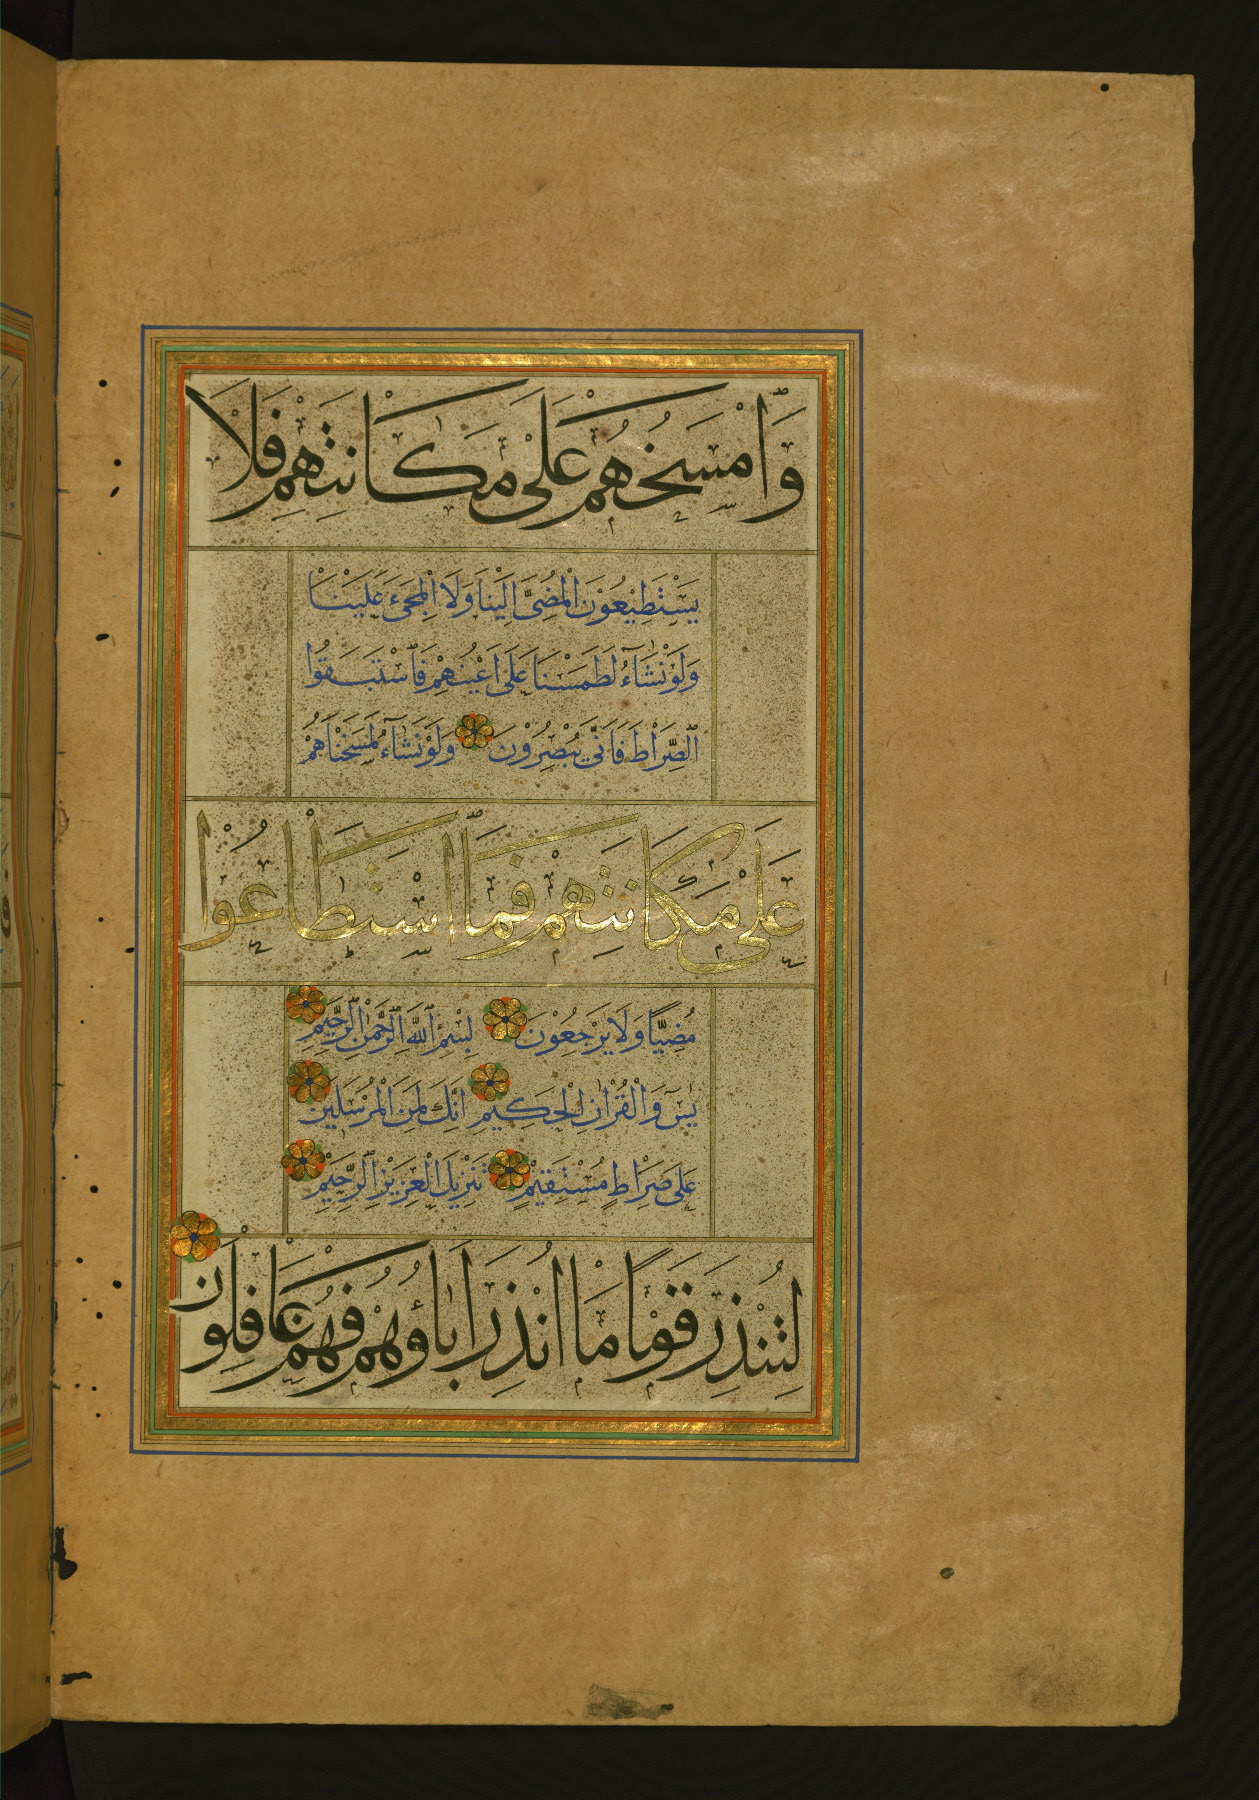 وَٱمْسَخُهُمْ عَلَى مَكَانَتِهِمْ فَلَا
يَسْتَطِيْعُوْنَ الْمُضِىَّ اِلَيْنَا وَلَا الْمَجِىءَ عَلَيْنَا
وَلَوْ نَشَآءُ لَطَمَسْنَا عَلَى اَعْيُنِهِمْ فَاسْتَبَقُوا
الصِّرَاطَ فَاَنّٰى يُبْصِرُوْنَ وَلَوْ نَشَآءُ لَمَسَخْنَاهُمْ
عَلَى مَكَانَتِهِمْ فَمَا اسْتَطَاعُوْا
مُضِيًّا وَلَا يَرْجِعُوْنَ بِسْمِ اللّٰهِ الرَّحْمٰنِ الرَّحِيْمِ
يٰسٓ وَالْقُرْاٰنِ الْحَكِيْمِ اِنَّكَ لَمِنَ الْمُرْسَلِيْنَ
عَلَى صِرَاطٍ مُسْتَقِيْمٍ تَنْزِيْلَ الْعَزِيْزِ الرَّحِيْمِ
لِتُنْذِرَ قَوْمًا مَا اُنْذِرَ اٰبَاؤُهُمْ فَهُمْ غَافِلُوْنَ